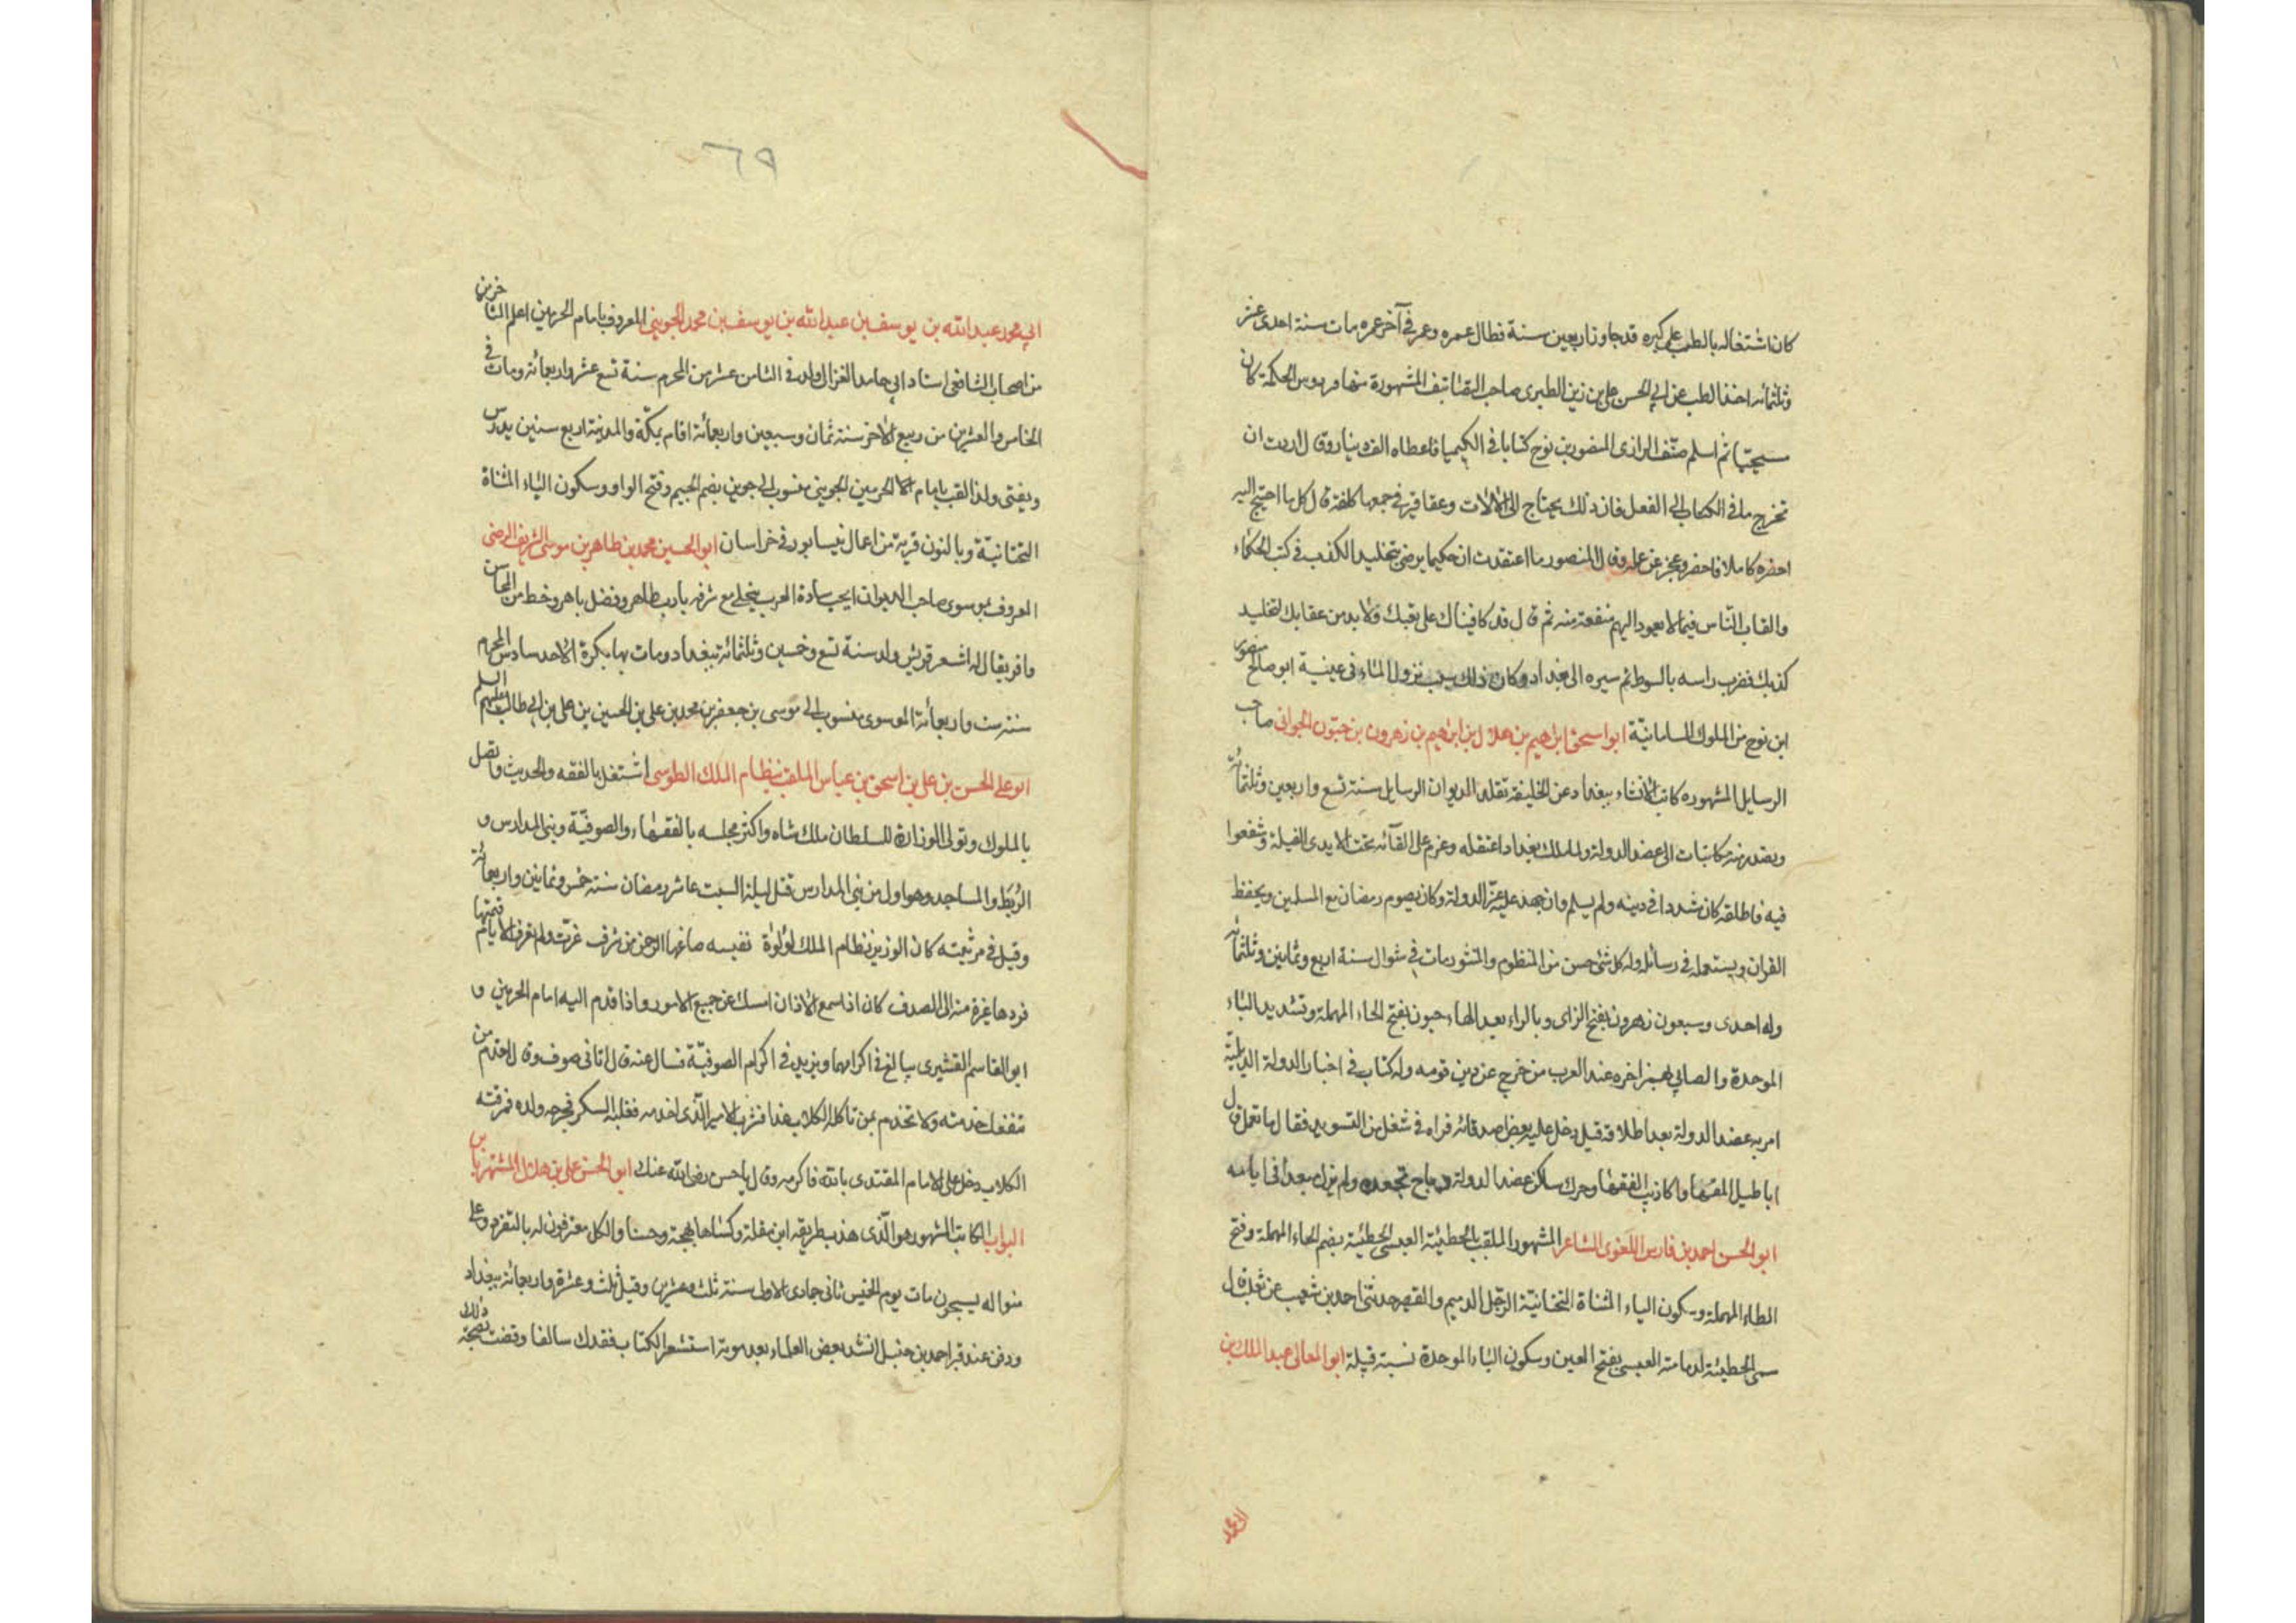 كان اشتغاله بالطب على كبره قد جاوز اربعين سنة فطال عمره وعمر في آخر عمره مات سنة احدى عشر
وثلثمائه اخذ الطب عن ابي الحسن علي بن زين الطبرى صاحب التصانيف المشهورة منها فردوس الحكمة كان
مسيحيّا ثم اسلم صنّف الرازى لمنصور بن نوح كتابا في الكيميا فاعطاه الف دينار وقال اردت ان
تخرج ما في الكتاب الى الفعل فان ذلك يحتاج الى الآلات وعقاقير في جمعها كلفة قال كل ما احتيج اليه
احضره كاملا فاحضر وعجز عن عمله وقال المنصور ما اعتقدت ان حكيما يرضى بتخليد الكذب في كتب الحكماء
والقاب النّاس فيما لا يعود اليهم منفعة منه ثم قال قد كافيناك على تعبك ولابد من عقابك لتخليد
كذبك فضرب راسه بالسوط ثم سيره الى بغداد وكان ذلك سبب نزول الماء في عينية ابو صالح منصور
ابن نوح من الملوك السامانيّة ابو اسحق ابرهيم بن هلال بن ابرهيم بن زهرون بن حبون الحراني صاحب
الرسايل المشهوره كاتب الانشاء ببغداد عن الخليفة تقلد الديوان الرسايل سنة تسع واربعين وثلثمائه
وبصدر منه مكاتبات الى عضد الدولة ولما ملك بغداد اعتقله وعزم على القائه تحت الايدى الفيلة وشفعوا
فيه فاطلقه كان متشددا في دينه ولم يسلم وان جهد عليه عزّ الدولة وكان يصوم رمضان مع المسلمين ويحفظ
القران ويستعمله في رسائله وله كل شئ حسن من المنظوم والمنثور مات في شوال سنة اربع وثمانين وثلثمائه
وله احدى وسبعون زهرون بفتح الزاى وبالراء بعد الهاء حبون بفتح الحاء المهملة وتشديد الباء
الموحدة والصابي بهمز اخره عند العرب من خرج عن دين قومه وله كتاب في اخبار الدولة الديلميّة
امر به عضد الدولة بعد اطلاقه قيل دخل عليه بعض اصدقائه فراه في شغل من التسويد فقال ما تعمل قال
اباطيل انمقها واكاذيب الفقها وحرك ساكن عضد الدولة وهاج ولم يزل مبعدا في ايامه
ابو الحسن احمد بن فارس اللغوى الشاعر المشهور الملقب بالحطيئة العبسى الحطيئة بضم الحاء المهملة وفتح
الطاء المهملة وسكون الياء المثناة التحتانيّة الرّجل الدميم والقصير حدثنى احمد بن شعيب عن ثعلب قال
سمى الحطيئة لدمامته العبسى بفتح العين وسكون الباء الموحدة نسبة قبيلة ابو المعالى عبد الملك بن
٦٩
ابي محمد عبد الله بن يوسف بن عبد الله بن يوسف بن محمد الجوينى المعروف بامام الحرمين اعلم المتاخرين
من اصحاب الشافعى استاد ابي حامد الغزالى ولد في الثامن عشر من المحرم سنة تسع عشر واربعمائة ومات في
الخامس والعشرين من ربيع الاخر سنة ثمان وسبعين واربعمائة اقام بمكّة والمدينة اربع سنين يدرس
ويفتى ولذا لقب بامام الحرمين الجوينى منسوب الى جوين بضم الجيم وفتح الواو وسكون الياء المثناة
التحتانيّة وبالنون قرية من اعمال نيسابور في خراسان ابو الحسين محمد بن طاهر بن موسى الشريف الرضى
المعروف بموسوى صاحب الديوان سادة العرب يتحلى مع شرفه بادب ظاهر وفضل باهر وخط من المحاسن
وافر يقال له اشعر قريش ولد سنة تسع وخمسين وثلثمائة ببغداد ومات بها بكرة الاحد سادس المحرم
سنة ست واربعمائة الموسوى منسوب الى موسى بن جعفر بن محمد بن على بن الحسين بن على بن ابي طالب عليهم السلم
ابو على الحسن بن على بن اسحق بن عباس الملقب بنظام الملك الطوسى اشتغل بالفقه والحديث واتصل
بالملوك وتولى الوزارة للسلطان ملك شاه واكثر مجلسه بالفقهاء والصوفيّة وبنى المدارس و
الرّبط والمساجد وهو اول من بنى المدارس قتل ليلة السبت عاشر رمضان سنة خمس وثمانين واربعمائة
وقيل في مرثيته كان الوزير نظام الملك لؤلؤة نفيسه صاغها الرحمن من شرف عزّت ولم تعرف الايام قيمتها
فردها غيرة منه الى الصدف كان اذا سمع الاذان امسك عن جميع الامور واذا قدم اليه امام الحرمين و
ابو القاسم القشيرى يبالغ في اكرامهما ويزيد في اكرام الصوفيّة فسال عنه قال اتانى صوفى وقال اخدم من
تنفعك خدمته ولا تخدم بمن تاكله الكلاب غدا فشرب الامير الّذى اخدمه فغلبه السكر فخرج وحده فمزقته
الكلاب دخل على الامام المقتدى بالله فاكرمه وقال يا حسن رضى الله عنك ابو الحسن على بن هلال المشتهر بابن
البواب الكاتب المشهور هو الّذى هذب طريقه ابن مقلة وكساها بهجة وحسنا والكل معترفون له بالتفرد وعلى
منواله ينسجون مات يوم الخميس ثانى جمادى الاولى سنة ثلث وعشرين وقيل ثلث وعشرة واربعمائة ببغداد
ودفن عند قبر احمد بن حنبل انشد بعض العلماء بعد موته استشعر الكتاب فقدك سالفا وقضت بصحة ذلك